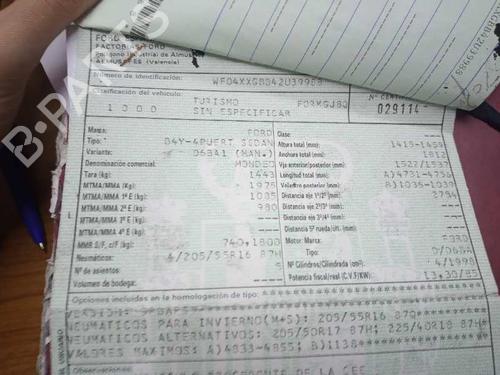 FORD
FACTORIAS FORD
Polígono Industrial de Almus
ALMUSSAFES (Valencia)
Número de identificación: WF04XXGBB42U39988
Clasificación del vehículo:
TURISMO
1 0 0 0 SIN ESPECIFICAR
029114
Marca: FORD
Tipo: B4Y-4PUERT.SEDAN
Variante: D6BA1 (MAN.)
Denominación comercial: MONDEO
Tara (kg): 1443
MTMA/MMA (Kg): 1975
MTMA/MMA 1º E (kg): 1085
MTMA/MMA 2º E (kg): 980
MTMA/MMA 3º E (kg): ---
MTMA/MMA 4º E (kg): ---
MMR S/F, c/F (kg): 740,1800
Neumáticos: 4/205/55R16 87H
Nº de asientos: 5
Volumen de bodega: ---
Clase: ---
Altura total (mm): 1415-1459
Anchura total (mm): 1812
Vía anterior/posterior (mm): 1522/1537
Longitud total (mm): A)4731-4756
Voladizo posterior (mm): B)1035-1038
Distancia eje 1º/2º (mm): 2754
Distancia eje 2º/3º (mm): ---
Distancia eje 3º/4º (mm): ---
Distancia 5ª rueda/últ. (mm): ---
Motor: Marca: FORD
Tipo: D/D6BA
Nº Cilindros/Cilindrada (cm³): 4/1998
Potencia fiscal/real (C.V.F/KW): 13,30/85
Opciones incluidas en la homologación de tipo:
NEUMATICOS PARA INVIERNO(M+S): 205/55R16 87Q
NEUMATICOS ALTERNATIVOS: 205/50R17 87H; 225/40R18 87H
VALORES MAXIMOS: A)4833-4855; B)1138
Observaciones